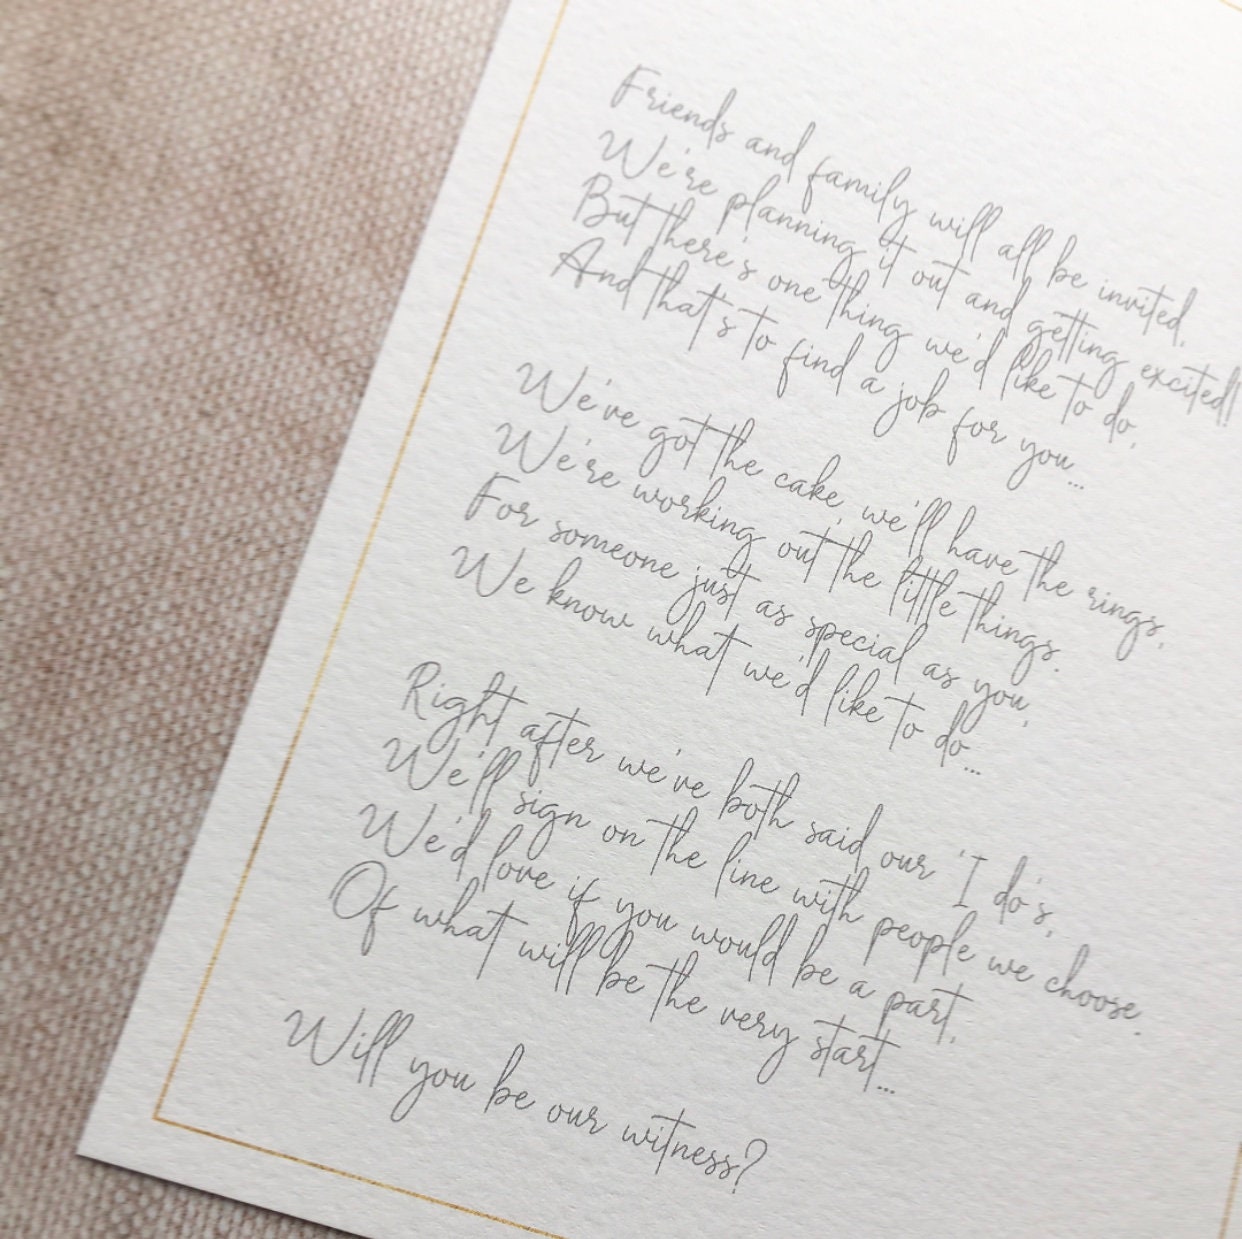 Friends and family will all be invited,
We're planning it out and getting excited!
But there's one thing we'd like to do,
And that's to find a job for you...
We've got the cake, we'll have the rings,
We're working out the little things.
For someone just as special as you,
We know what we'd like to do...
Right after we've both said our 'I do's,
We'll sign on the line with people we choose.
We'd love if you would be a part,
Of what will be the very start...
Will you be our witness?